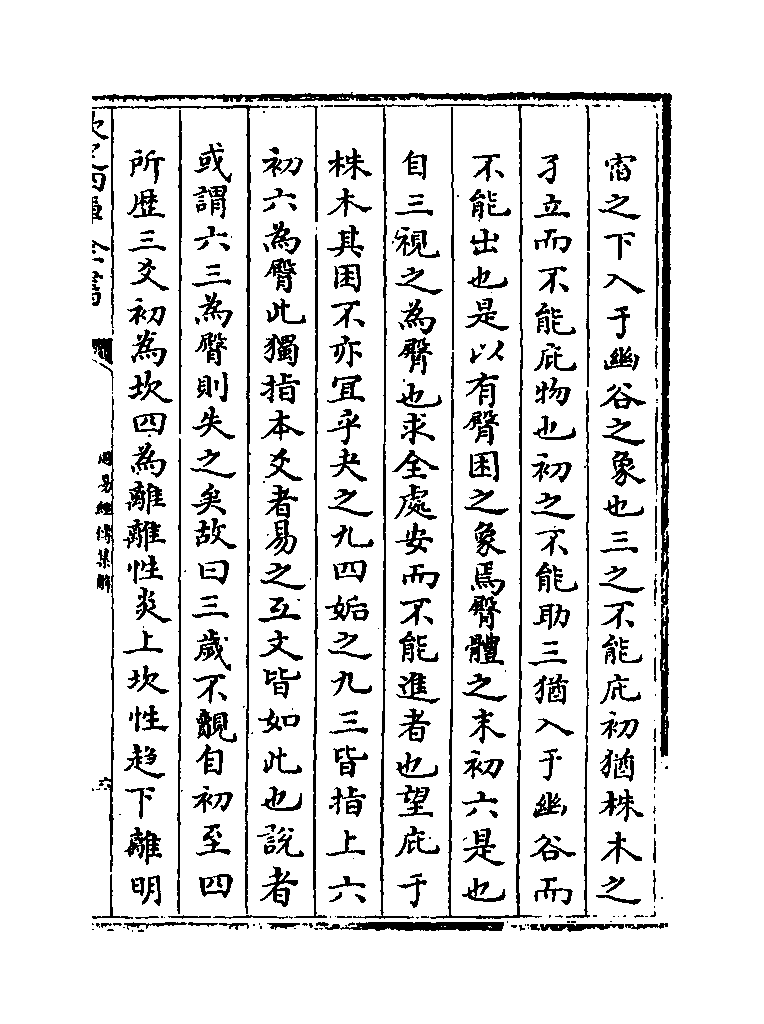 窞之下入于幽谷之象也三之不能庇初猶株木之
孑立而不能庇物也初之不能助三猶入于幽谷而
不能出也是以有臀困之象焉臀體之末初六是也
自三視之為臀也求全處安而不能進者也望庇于
株木其困不亦宜乎夬之九四姤之九三皆指上六
初六為臀此獨指本爻者易之互文皆如此也說者
或謂六三為臀則失之矣故曰三歲不覿自初至四
所歴三爻初為坎四為離離性炎上坎性趋下離明
周易經傳集解
六